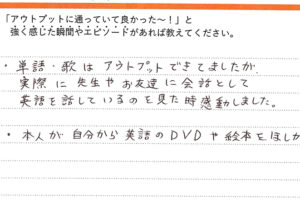 「アウトプットに通っていて良かった〜！」と
強く感じた瞬間やエピソードがあれば教えてください。
・単語・歌はアウトプットできてましたが、
実際に先生やお友達に会話として
英語を話しているのを見た時感動しました。
・本人が自分から英語のDVDや絵本をほしが